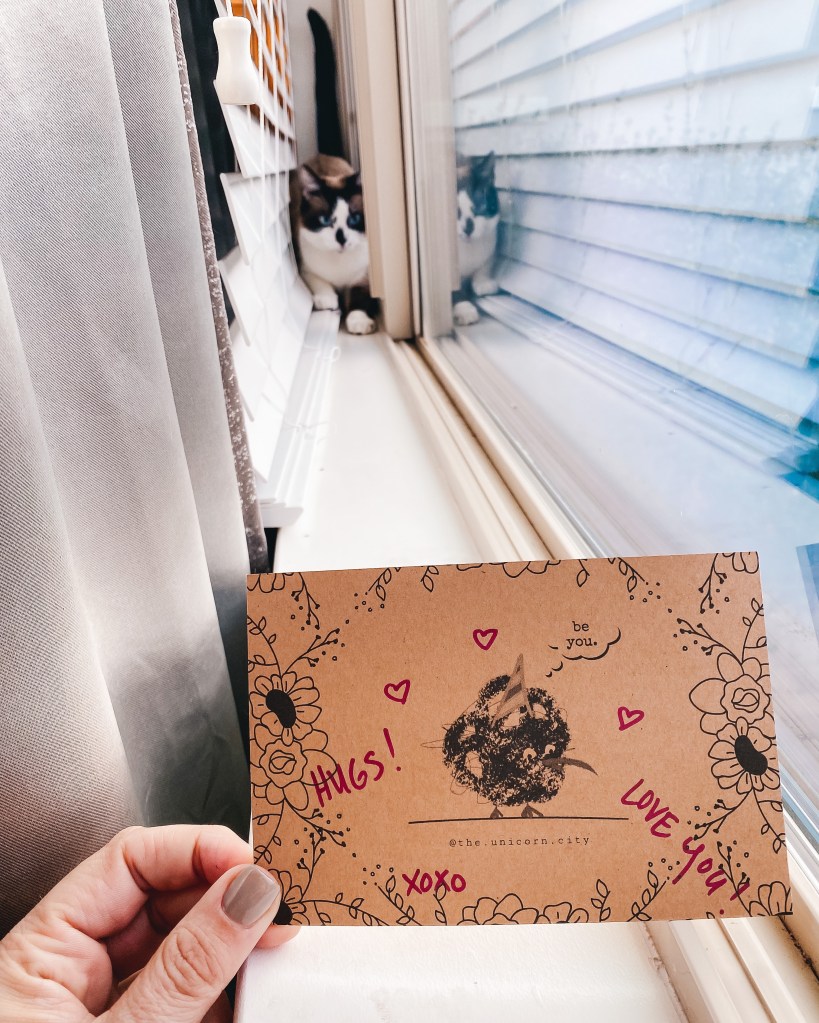 be
you.
HUGS!
LOVE YOU!
@the.unicorn.city
XOXO